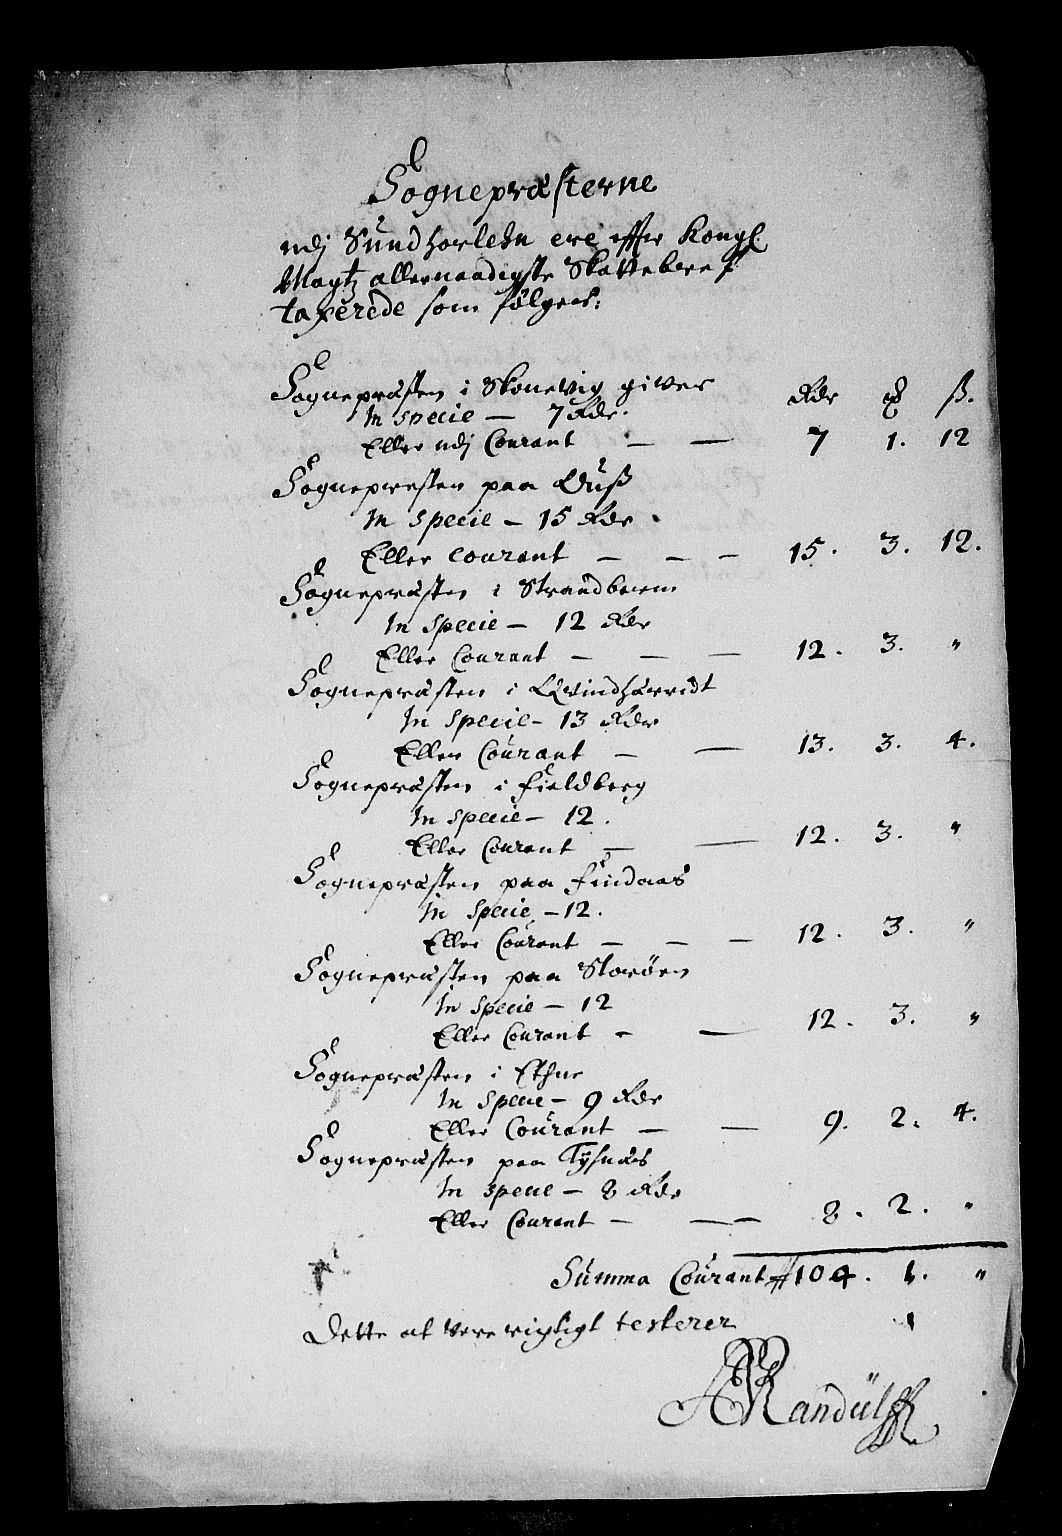 Sognepræsterne
udj Sundhorlehn ere effter Kongl.
Maytz allernaadigste Skattebref
taxerede som følger:
Sognepræsten i Skonevig giver Rdr ß.
In specie — 7 Rdr.
Eller udj Courant — — 7 1. 12
Sognepresten paa Huuß
In specie — 15 Rdr
Eller Courant — — — 15. 3. 12.
Sognepræsten i Strandbarm
In specie — 12 Rdr
Eller Courant — — — 12. 3. "
Sognepræsten i Qvindhærridt
In specie — 13 Rdr
Eller Courant — — 13. 3. 4.
Sognepræsten i Fieldberg
In specie — 12.
Eller Courant — — 12. 3. "
Sognepræsten paa Findaas
In specie — 12.
Eller Courant — — — 12. 3. "
Sognepræsten paa Storøen
In specie — 12
Eller Courant — — 12. 3. "
Sognepræsten i Ethne
In specie — 9 Rdr
Eller Courant — — 9. 2. 4.
Sognepræsten paa Tysnæs
In specie — 8 Rdr
Eller Courant — — — 8. 2. "
Summa Courant 104. 1. "
Dette at være rigtigt testerer
Randülff